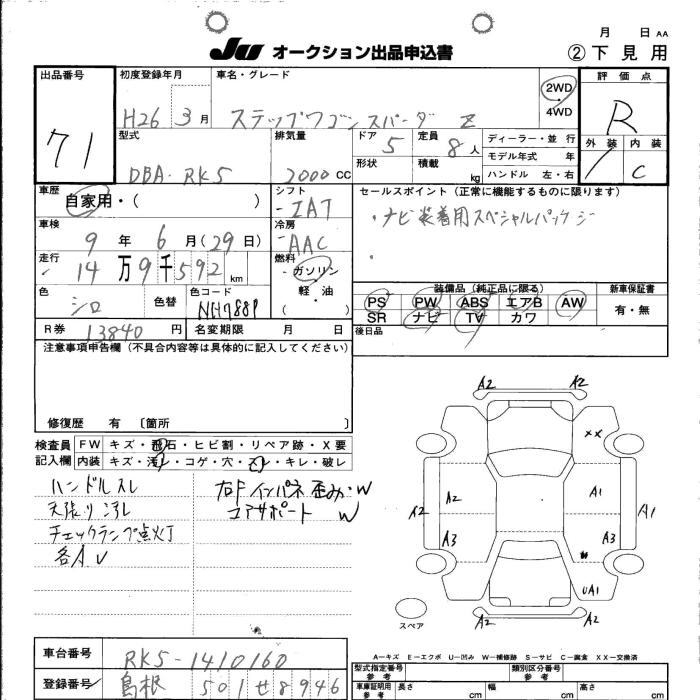 JU オークション出品申込書
月 日 AA
② 下見用
出品番号
71
初度登録年月
H26 3月
車名・グレード
ステップワゴンスパーダ Z
2WD
・
4WD
評価点
R
型式
DBA-RK5
排気量
2000 CC
ドア
5
定員
8人
形状
積載
kg
ディーラー・並行
モデル年式 年
ハンドル 左・右
外装 内装
C
車歴
自家用・( )
シフト
IAT
セールスポイント (正常に機能するものに限ります)
・ナビ装着用スペシャルパッケージ
・
車検
9年 6月(29日)
冷房
AAC
走行
14万9千592km
燃料
ガソリン
軽・油
( )
色
シロ
色替
色コード
NH788P
装備品 (純正品に限る)
PS PW ABS エアB AW
SR ナビ TV カワ
新車保証書
有・無
R券 13840円
名変期限 月 日
後日品
注意事項申告欄 (不具合内容等は具体的に記入してください)
修復歴 有 〔箇所 〕
検査員
記入欄
FW キズ・飛石・ヒビ割・リペア跡・X要
内装 キズ・汚レ・コゲ・穴・スレ・キレ・破レ
ハンドルスレ
天張り汚レ
チェックランプ点灯
各AU
右F インパネ歪み・W
コアサポート W
A2 A2
XX
A2 A2 A1 A1
A3 A3
UA1
A2 A2
スペア
A－キズ E－エクボ U－凹み W－補修跡 S－サビ C－腐食 XX－交換済
車台番号
RK5-1410160
登録番号
島根 501 せ 8946
型式指定番号
参考
類別区分番号
参考
車庫証明用
参考
長さ cm 幅 cm 高さ cm